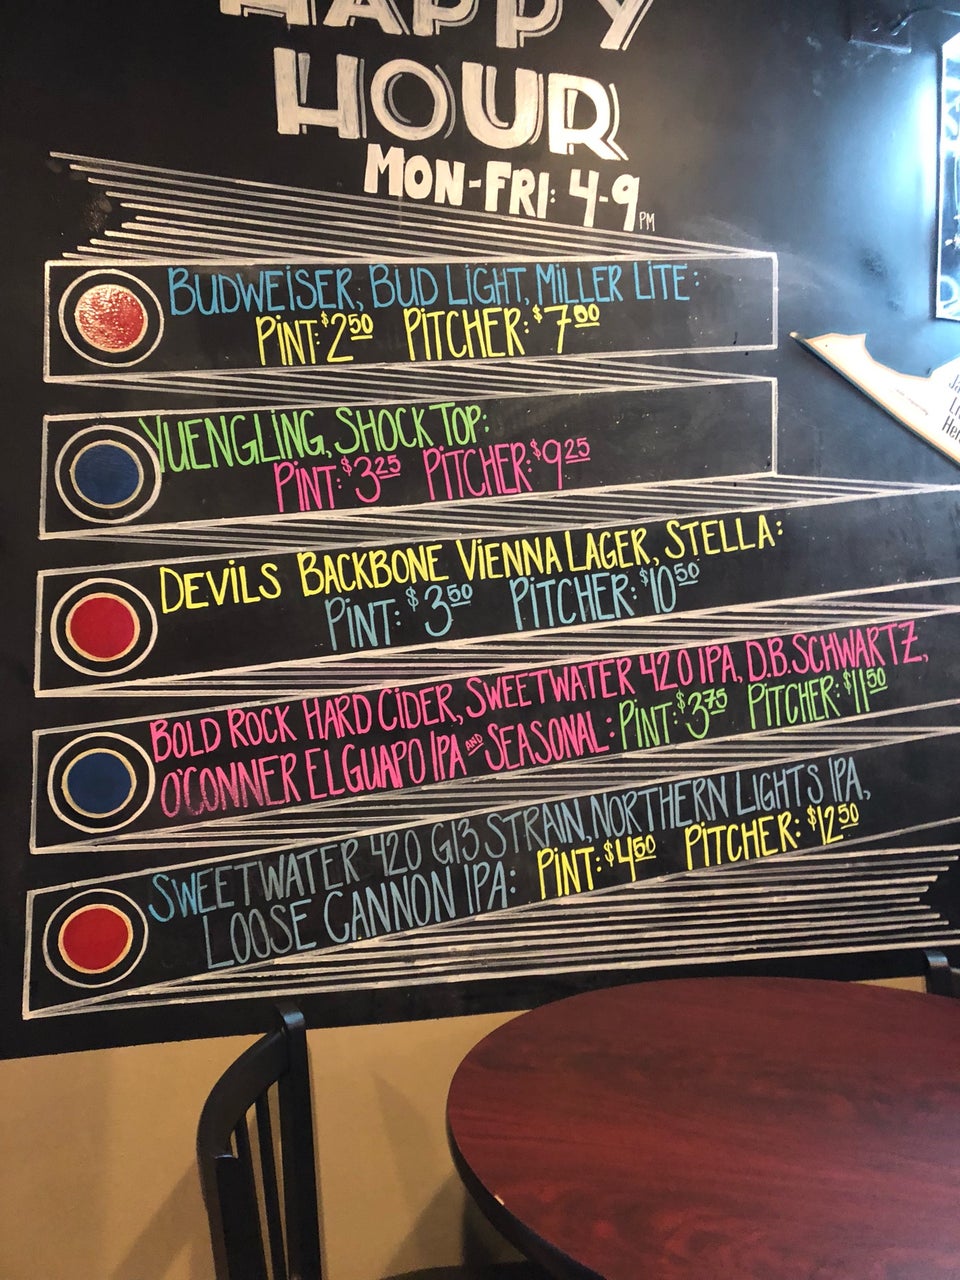 HAPPY
HOUR
MON-FRI: 4-9 PM
BUDWEISER, BUD LIGHT, MILLER LITE:
PINT: $2 50 PITCHER: $7 00
YUENGLING, SHOCK TOP:
PINT: $3 25 PITCHER: $9 25
DEVILS BACKBONE VIENNA LAGER, STELLA:
PINT: $3 50 PITCHER: $10 50
BOLD ROCK HARD CIDER, SWEETWATER 420 IPA, D.B. SCHWARTZ,
O'CONNER EL GUAPO IPA AND SEASONAL: PINT: $3 75 PITCHER: $11 50
SWEETWATER 420 G13 STRAIN, NORTHERN LIGHTS IPA,
LOOSE CANNON IPA: PINT: $4 50 PITCHER: $12 50